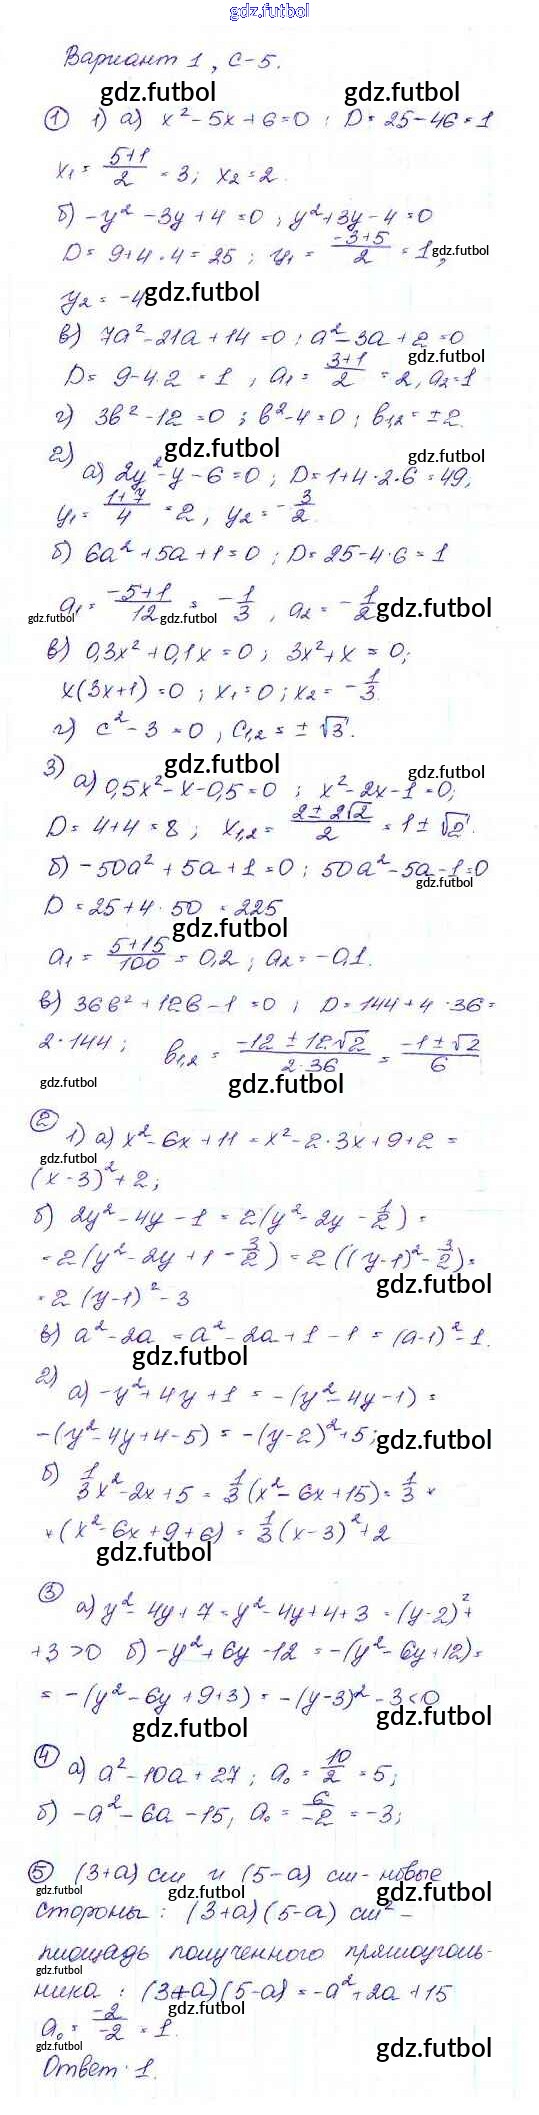 gdz.futbol
Вариант 1, С-5.
gdz.futbol gdz.futbol
① 1) а) x² - 5x + 6 = 0 ; D = 25 - 46 = 1
x₁ = (5+1)/2 = 3; x₂ = 2.
б) -y² - 3y + 4 = 0 ; y² + 3y - 4 = 0
D = 9 + 4 · 4 = 25 ; y₁ = (-3+5)/2 = 1, gdz.futbol
y₂ = -4 gdz.futbol
в) 7a² - 21a + 14 = 0 ; a² - 3a + 2 = 0
gdz.futbol
D = 9 - 4·2 = 1 , a₁ = (3+1)/2 = 2, a₂ = 1
г) 3b² - 12 = 0 ; b² - 4 = 0 ; b₁,₂ = ± 2.
gdz.futbol gdz.futbol
2) а) 2y² - y - 6 = 0 ; D = 1 + 4 · 2 · 6 = 49,
y₁ = (1+7)/4 = 2 ; y₂ = - 3/2.
б) 6a² + 5a + 1 = 0 ; D = 25 - 4·6 = 1
a₁ = (-5+1)/12 = - 1/3 , a₂ = - 1/2 gdz.futbol
gdz.futbol gdz.futbol
в) 0,3x² + 0,1x = 0 ; 3x² + x = 0;
x(3x+1) = 0 ; x₁ = 0 ; x₂ = - 1/3
г) c² - 3 = 0 , c₁,₂ = ± √3.
gdz.futbol gdz.futbol
3) а) 0,5x² - x - 0,5 = 0 ; x² - 2x - 1 = 0;
D = 4 + 4 = 8 ; x₁,₂ = (2 ± 2√2)/2 = 1 ± √2.
б) -50a² + 5a + 1 = 0 ; 50a² - 5a - 1 = 0
gdz.futbol
D = 25 + 4 · 50 = 225
gdz.futbol
a₁ = (5+15)/100 = 0,2 ; a₂ = -0,1.
в) 36b² + 12b - 1 = 0 ; D = 144 + 4 · 36 =
2 · 144 ; b₁,₂ = (-12 ± 12√2)/(2·36) = (-1 ± √2)/6
gdz.futbol gdz.futbol
② 1) а) x² - 6x + 11 = x² - 2 · 3x + 9 + 2 =
gdz.futbol
(x - 3)² + 2 ;
б) 2y² - 4y - 1 = 2(y² - 2y - 1/2) =
= 2(y² - 2y + 1 - 3/2) = 2((y-1)² - 3/2) =
gdz.futbol
= 2(y-1)² - 3
в) a² - 2a = a² - 2a + 1 - 1 = (a-1)² - 1.
gdz.futbol
2) а) -y² + 4y + 1 = -(y² - 4y - 1) =
-(y² - 4y + 4 - 5) = -(y-2)² + 5; gdz.futbol
б) 1/3x² - 2x + 5 = 1/3(x² - 6x + 15) = 1/3 ×
× (x² - 6x + 9 + 6) = 1/3(x-3)² + 2
gdz.futbol
③ а) y² - 4y + 7 = y² - 4y + 4 + 3 = (y-2)² +
+ 3 > 0 б) -y² + 6y - 12 = -(y² - 6y + 12) =
= -(y² - 6y + 9 + 3) = -(y-3)² - 3 < 0
gdz.futbol gdz.futbol
④ а) a² - 10a + 27 ; a₀ = 10/2 = 5;
б) -a² - 6a - 15, a₀ = 6/-2 = -3;
⑤ (3+a) см и (5-a) см - новые
gdz.futbol gdz.futbol gdz.futbol
стороны : (3+a)(5-a) см² -
площадь полученного прямоуголь-
gdz.futbol
ника : (3+a)(5-a) = -a² + 2a + 15
gdz.futbol
a₀ = -2/-2 = 1.
gdz.futbol gdz.futbol
Ответ · 1.